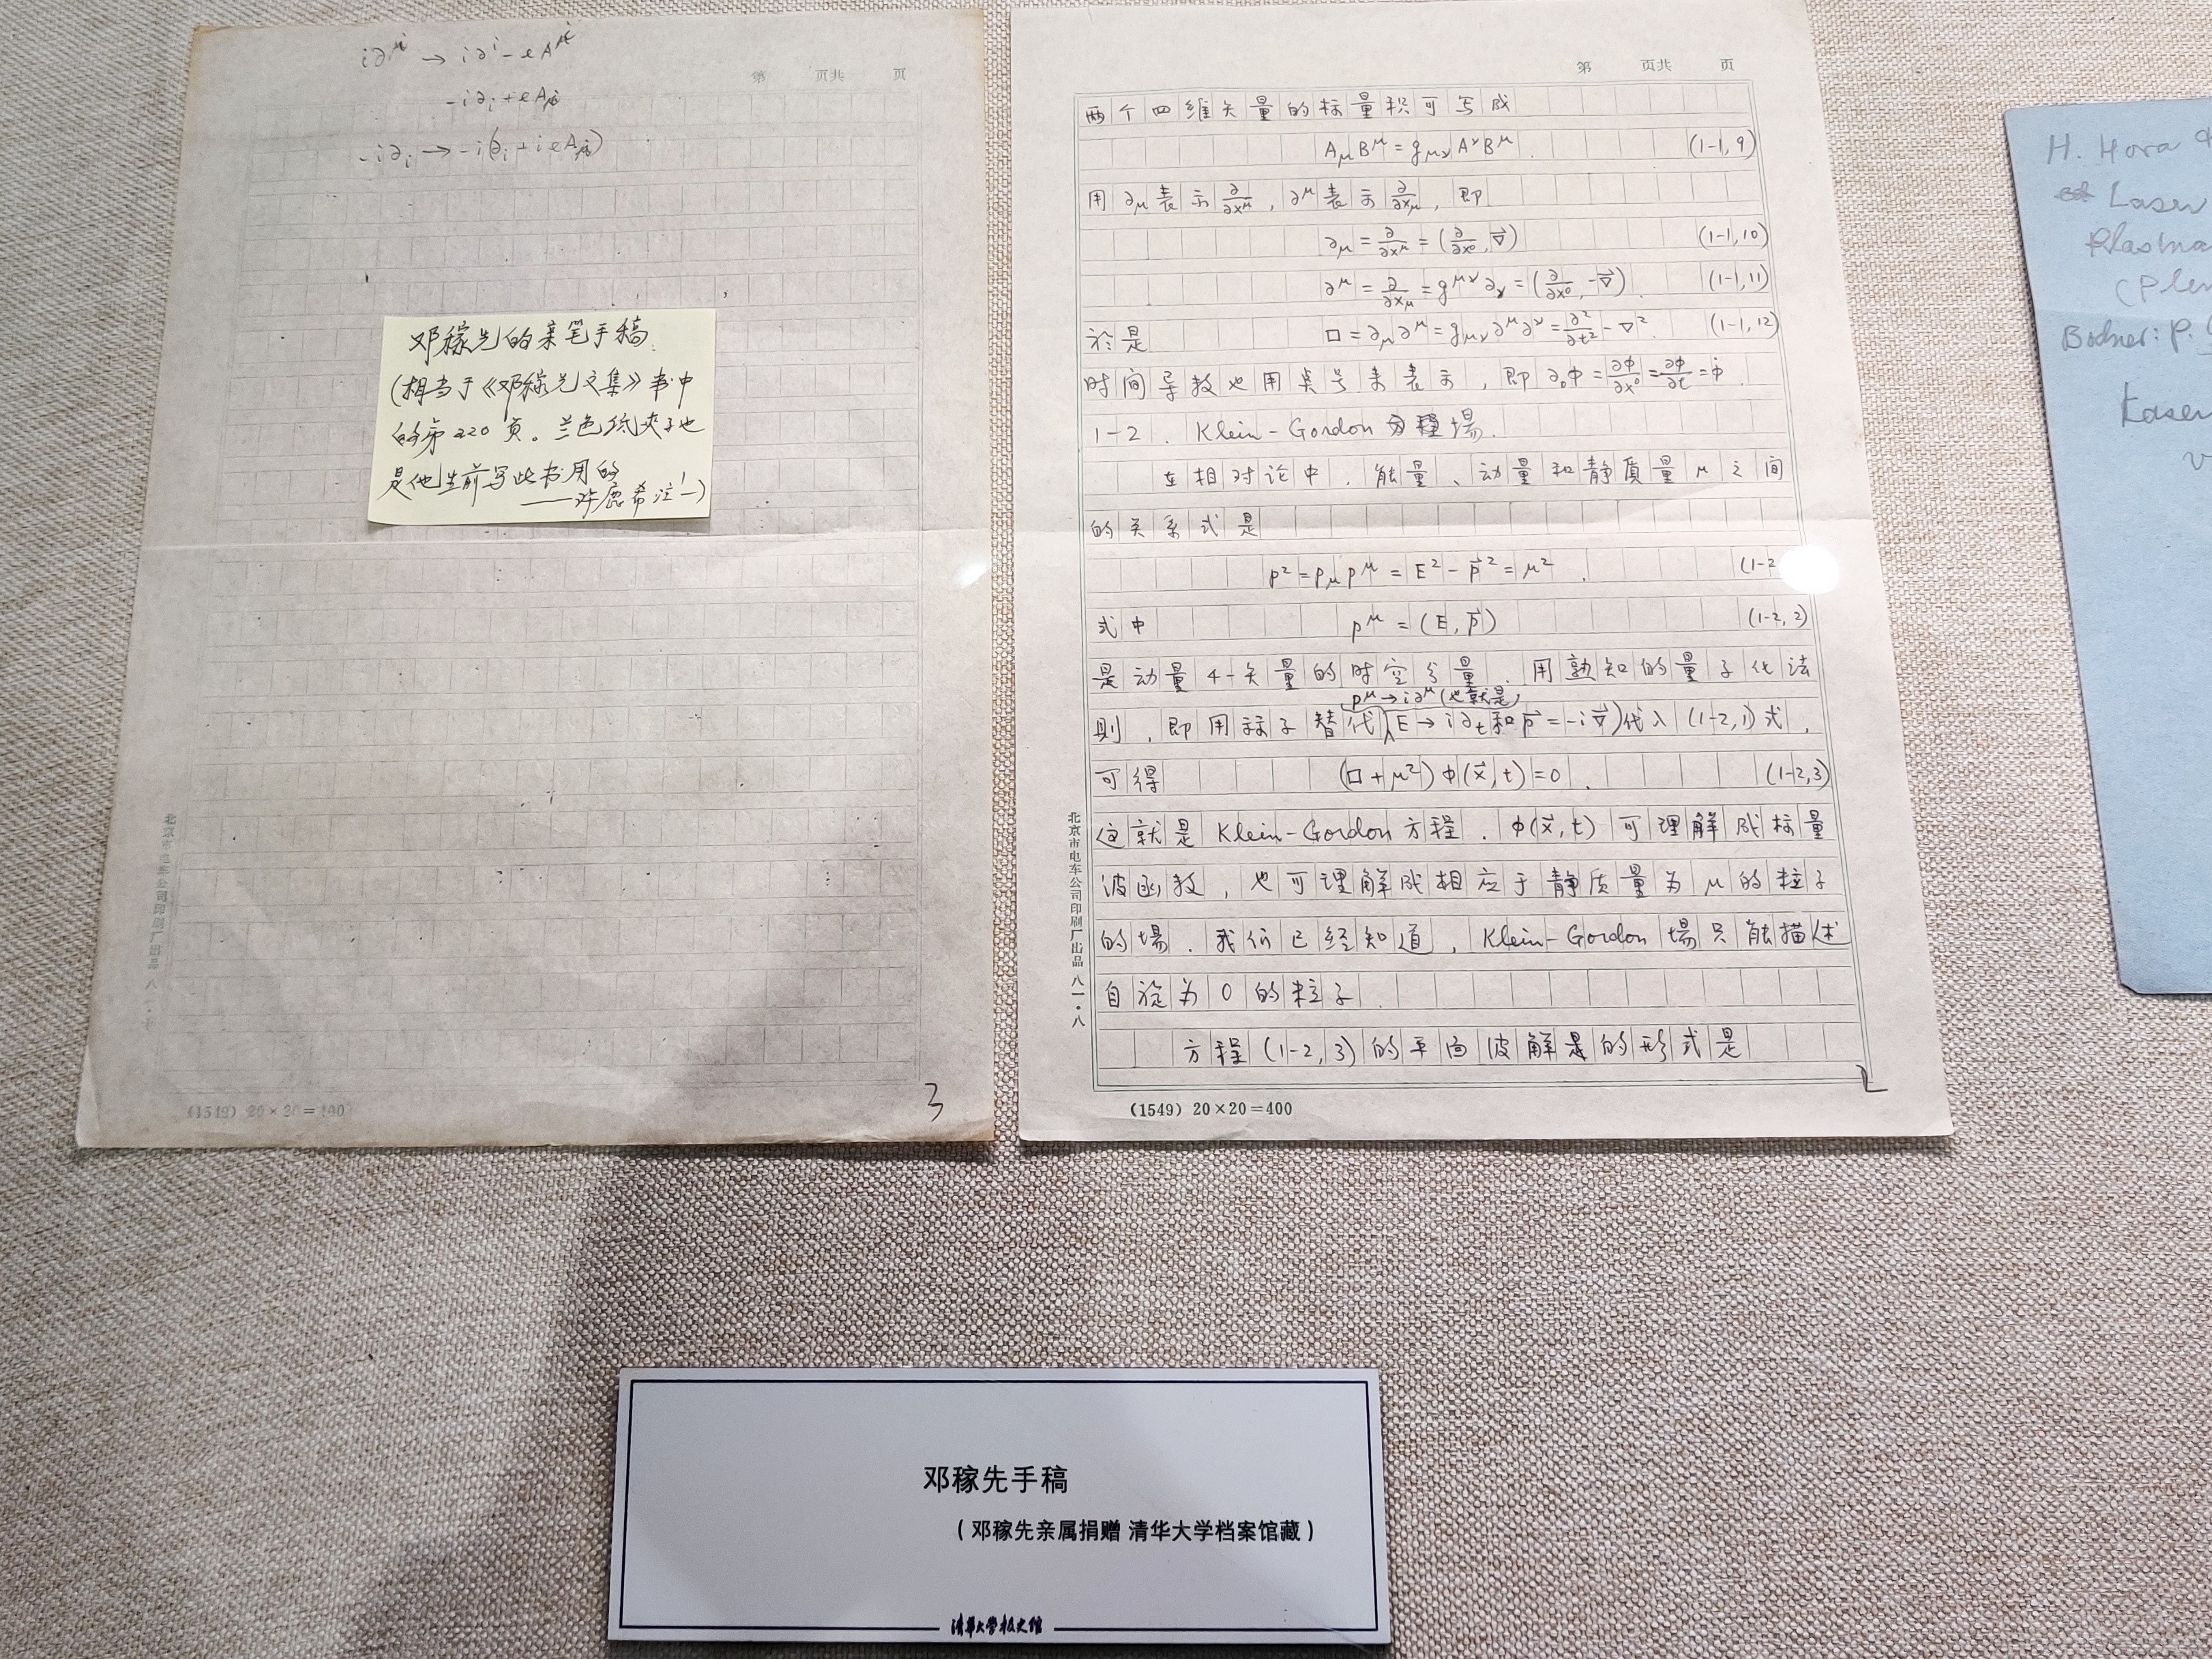 i∂^μ → i∂^i − eA^μ
−i∂_i + eA_i
−i∂_i → −i(∂_i + ieA_i)
第 页共 页
邓稼先的亲笔手稿
(相当于《邓稼先文集》书中
的第220页。兰色纸夹子也
是他生前写此书用的
——许鹿希注!—)
北京市电车公司印刷厂出品 八一·七
(1549) 20×20=400
3
第 页共 页
两个四维矢量的标量积可写成
A_μB^μ = g_μν A^ν B^μ . (1-1,9)
用 ∂_μ 表示 ∂/∂x^μ , ∂^μ 表示 ∂/∂x_μ , 即
∂_μ = ∂/∂x^μ = (∂/∂x⁰, ∇⃗) (1-1,10)
∂^μ = ∂/∂x_μ = g^μν ∂_ν = (∂/∂x⁰, −∇⃗) . (1-1,11)
於是 □ = ∂_μ∂^μ = g_μν ∂^μ∂^ν = ∂²/∂t² − ∇² . (1-1,12)
时间导数也用点号来表示, 即 ∂₀φ = ∂φ/∂x⁰ = ∂φ/∂t = φ̇ .
1-2 . Klein-Gordon 場 .
在相对论中 . 能量、动量和静质量 μ 之间
的关系式是
p² = p_μ p^μ = E² − p⃗² = μ² , (1-2
式中 p^μ = (E, p⃗) (1-2,2)
是动量 4-矢量的时空分量 . 用熟知的量子化法
p^μ → i∂^μ (也就是
则 , 即用算子替代 E → i∂_t 和 p⃗ = −i∇⃗) 代入 (1-2,1) 式 ,
可得 (□ + μ²) φ(x⃗, t) = 0 . (1-2,3)
这就是 Klein-Gordon 方程 . φ(x⃗, t) 可理解成标量
波函数 , 也可理解成相应于静质量为 μ 的粒子
的場 . 我们已经知道 , Klein-Gordon 場只能描述
自旋为 0 的粒子 .
方程 (1-2,3) 的平面波解的形式是
北京市电车公司印刷厂出品 八一·八
(1549) 20×20=400
2
H. Hora
Laser
Plasma
(Plen
Bodner: P.
Laser
邓稼先手稿
(邓稼先亲属捐赠 清华大学档案馆藏)
清华大学校史馆